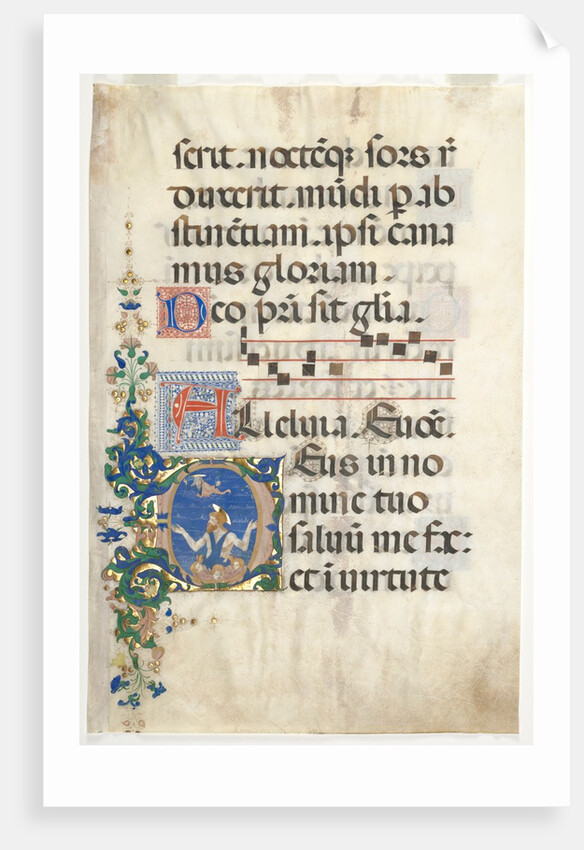 scrit. noctẽqꝫ sors r̃
duxerit. mũdi ꝑ ab
stinẽtiam. ipsi cana
mus gloriam.
Deo pr̃i sit glia.
Alleluia. Euoe.
Eus in no
mine tuo
saluũ me fac:
et i uirtute